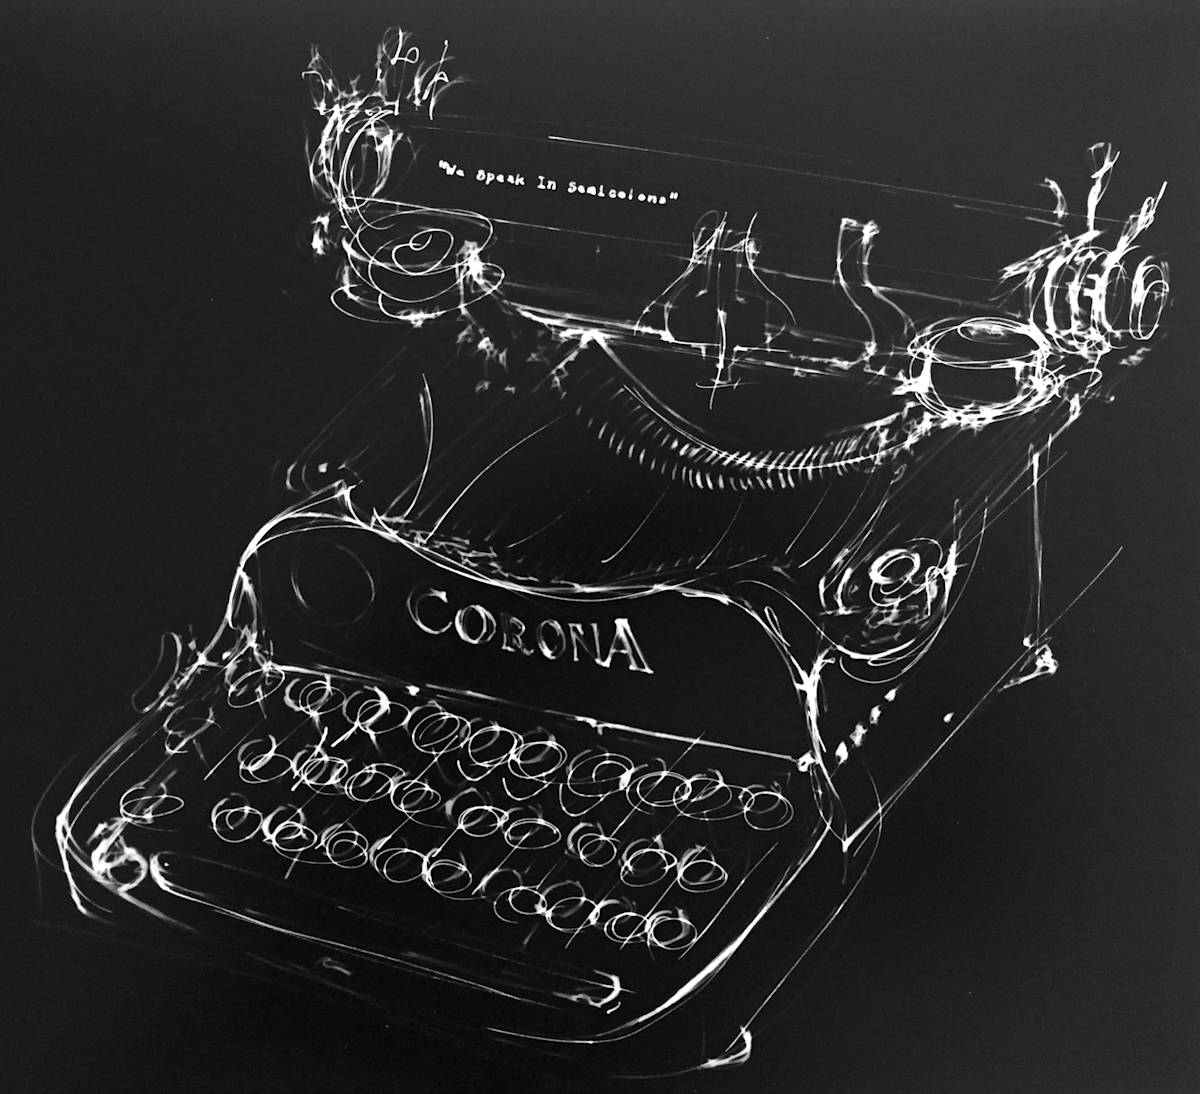 "We Speak In Semicolons"
CORONA